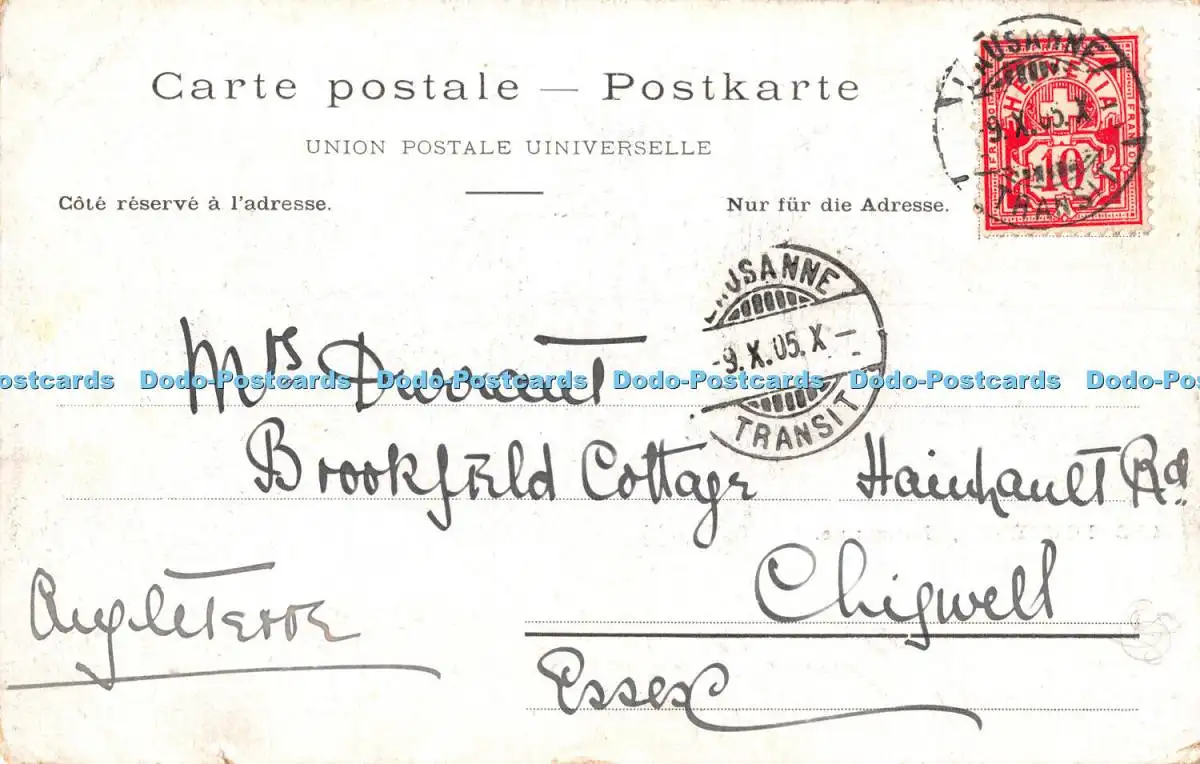 Carte postale — Postkarte
UNION POSTALE UINIVERSELLE
Côté réservé à l'adresse.
Nur für die Adresse.
LAUSANNE
9.X.05.X
TRANSIT
HELVETIA
FRANCO
FRANCO
10
LAUSANNE
-9.X.05.X-
TRANSIT
Mrs Durrant
Dodo-Postcards Dodo-Postcards Dodo-Postcards Dodo-Postcards Dodo-Postcards
Brookfield Cottage Hainhault Rd.
Chigwell
Angleterre
Essex